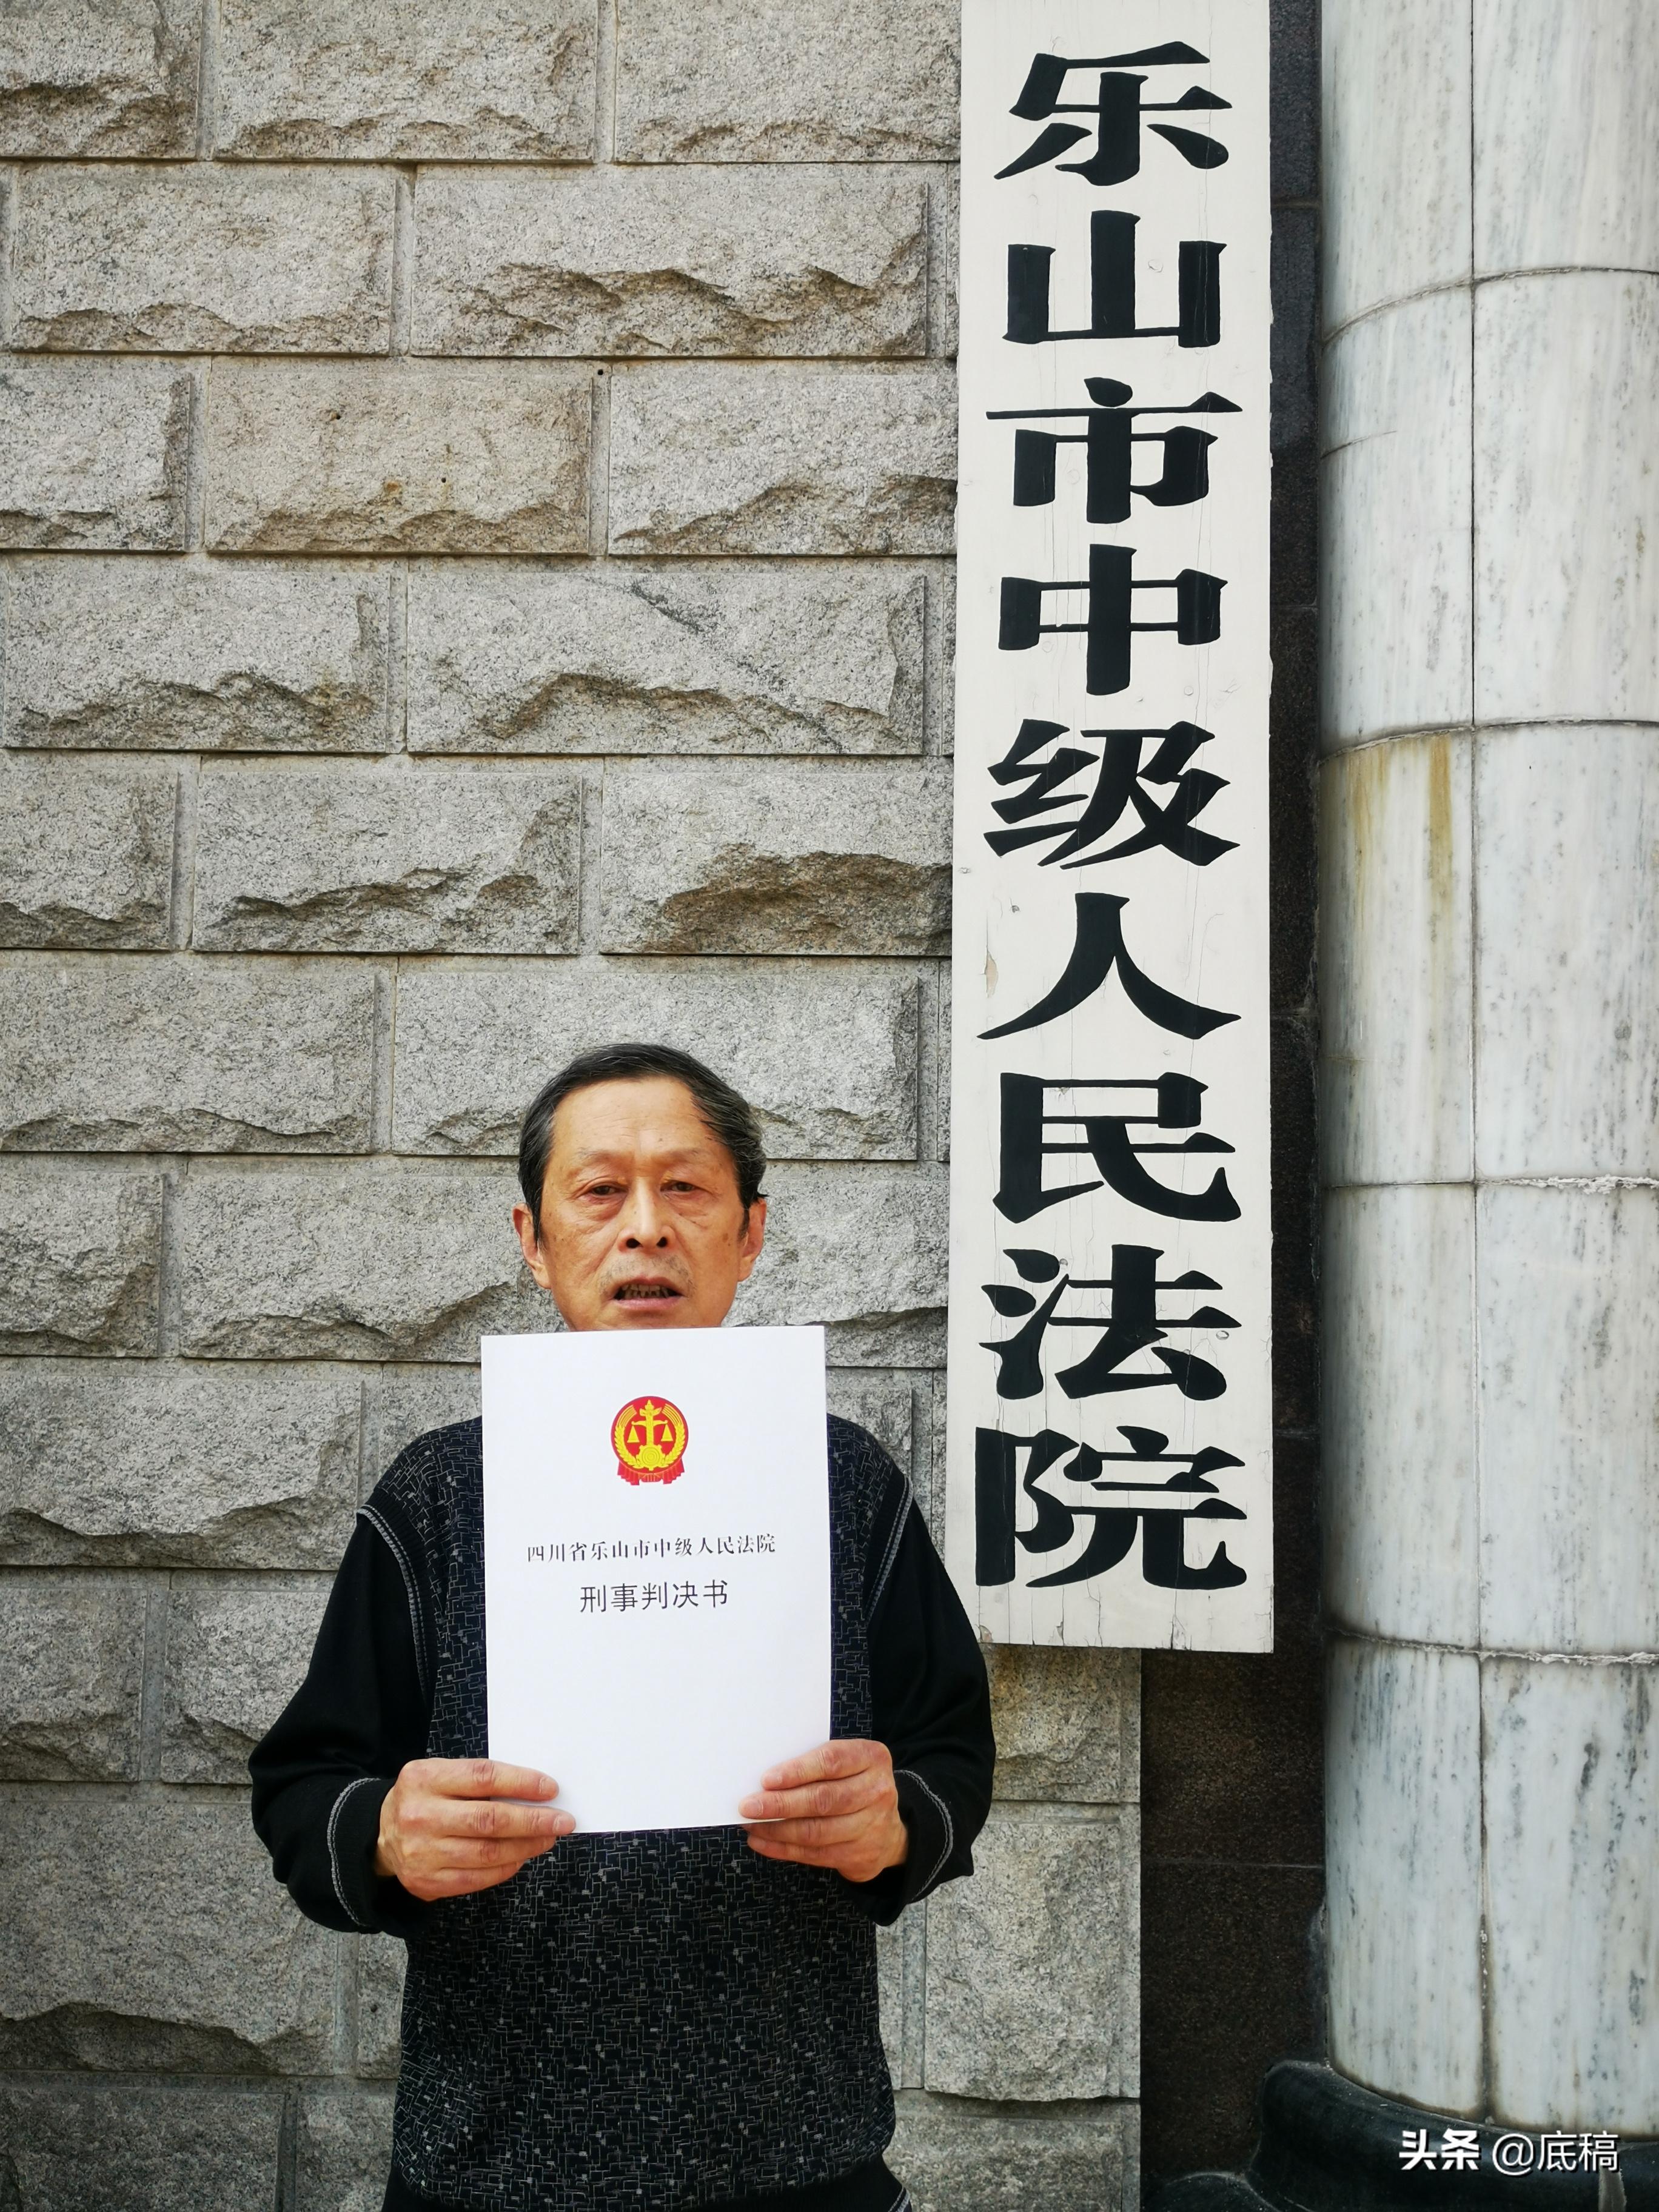 乐山市中级人民法院
四川省乐山市中级人民法院
刑事判决书
头条 @底稿